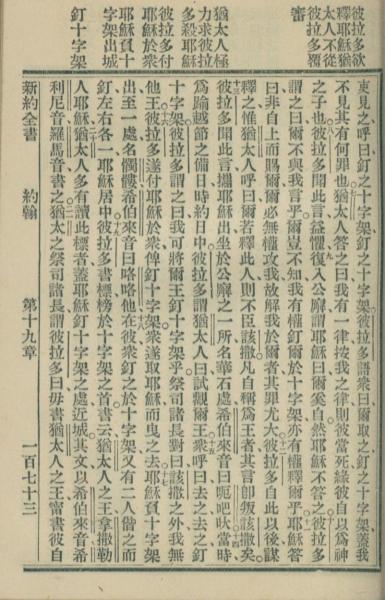 彼拉多欲
釋耶穌猶
太人不從
彼拉多覆
審
猶太人極
力求彼拉
多殺耶穌
彼拉多付
耶穌於衆
耶穌負十
字架出城
釘十字架
吏見之呼曰釘之十字架釘之十字架彼拉多語衆曰爾取之釘之十字架蓋我
不見其有何罪也猶太人答之曰我有一律按我之律則彼當死緣彼自以爲神
之子也彼拉多聞此言益懼復入公廨謂耶穌曰爾奚自然耶穌不答之彼拉多
謂之曰爾不與我言乎爾豈不知我有權釘爾於十字架亦有權釋爾乎耶穌答
曰非自上而賜爾爾必無權攻我故解我於爾者其罪尤大彼拉多自此以後謀
釋之惟猶太人呼曰爾若釋此人則不臣該撒凡自稱爲王者其言卽叛該撒矣
彼拉多聞此言攜耶穌出坐於公廨之一所名華石處希伯來音曰呃吧吠當時
爲踰越節之備日時約日中彼拉多謂猶太人曰試觀爾王衆呼曰去之去之釘
十字架彼拉多謂之曰我可將爾王釘十字架乎祭司諸長對曰該撒之外我無
他王彼拉多遂付耶穌於衆俾釘十字架衆遂取耶穌而曳之去耶穌負十字架
出至一處名髑髏希伯來音曰咯咯他在彼衆釘之於十字架又有二人偕之而
釘左右各一耶穌居中彼拉多書標榜於十字架之首書云猶太人之王拿撒勒
人耶穌猶太人多有讀此標者蓋耶穌釘十字架之處近城其文以希伯來音希
利尼音羅馬音書之猶太之祭司諸長謂彼拉多曰毋書猶太人之王寧書彼自
新約全書 約翰 第十九章 一百七十三